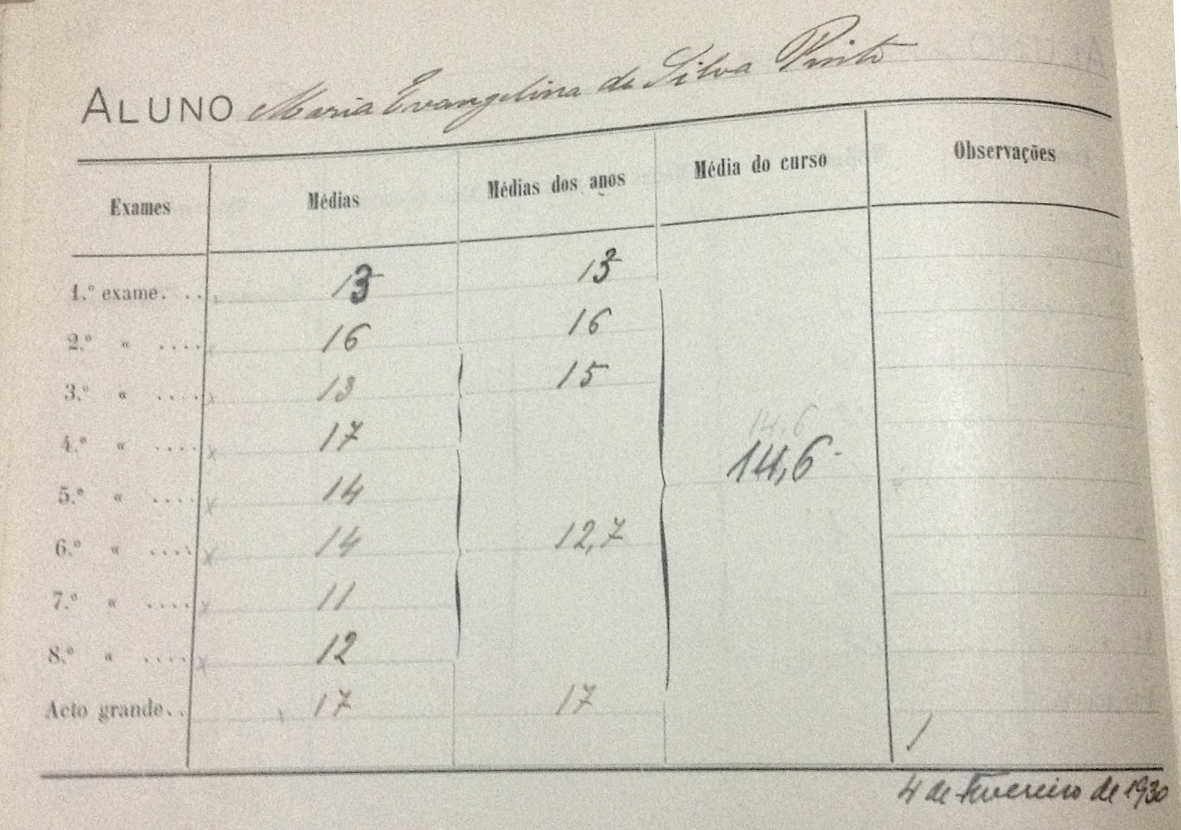 ALUNO Maria Evangelina da Silva Pinto
Exames Médias Médias dos anos Média do curso Observações
1.º exame. . . 13 13
2.º « .... 16 16
3.º « .... 13 15
4.º « .... 17
14,6
14,6
5.º « .... 14
6.º « .... 14 12,7
7.º « .... 11
8.º « .... 12
Acto grande. . 17 17
4 de Fevereiro de 1930